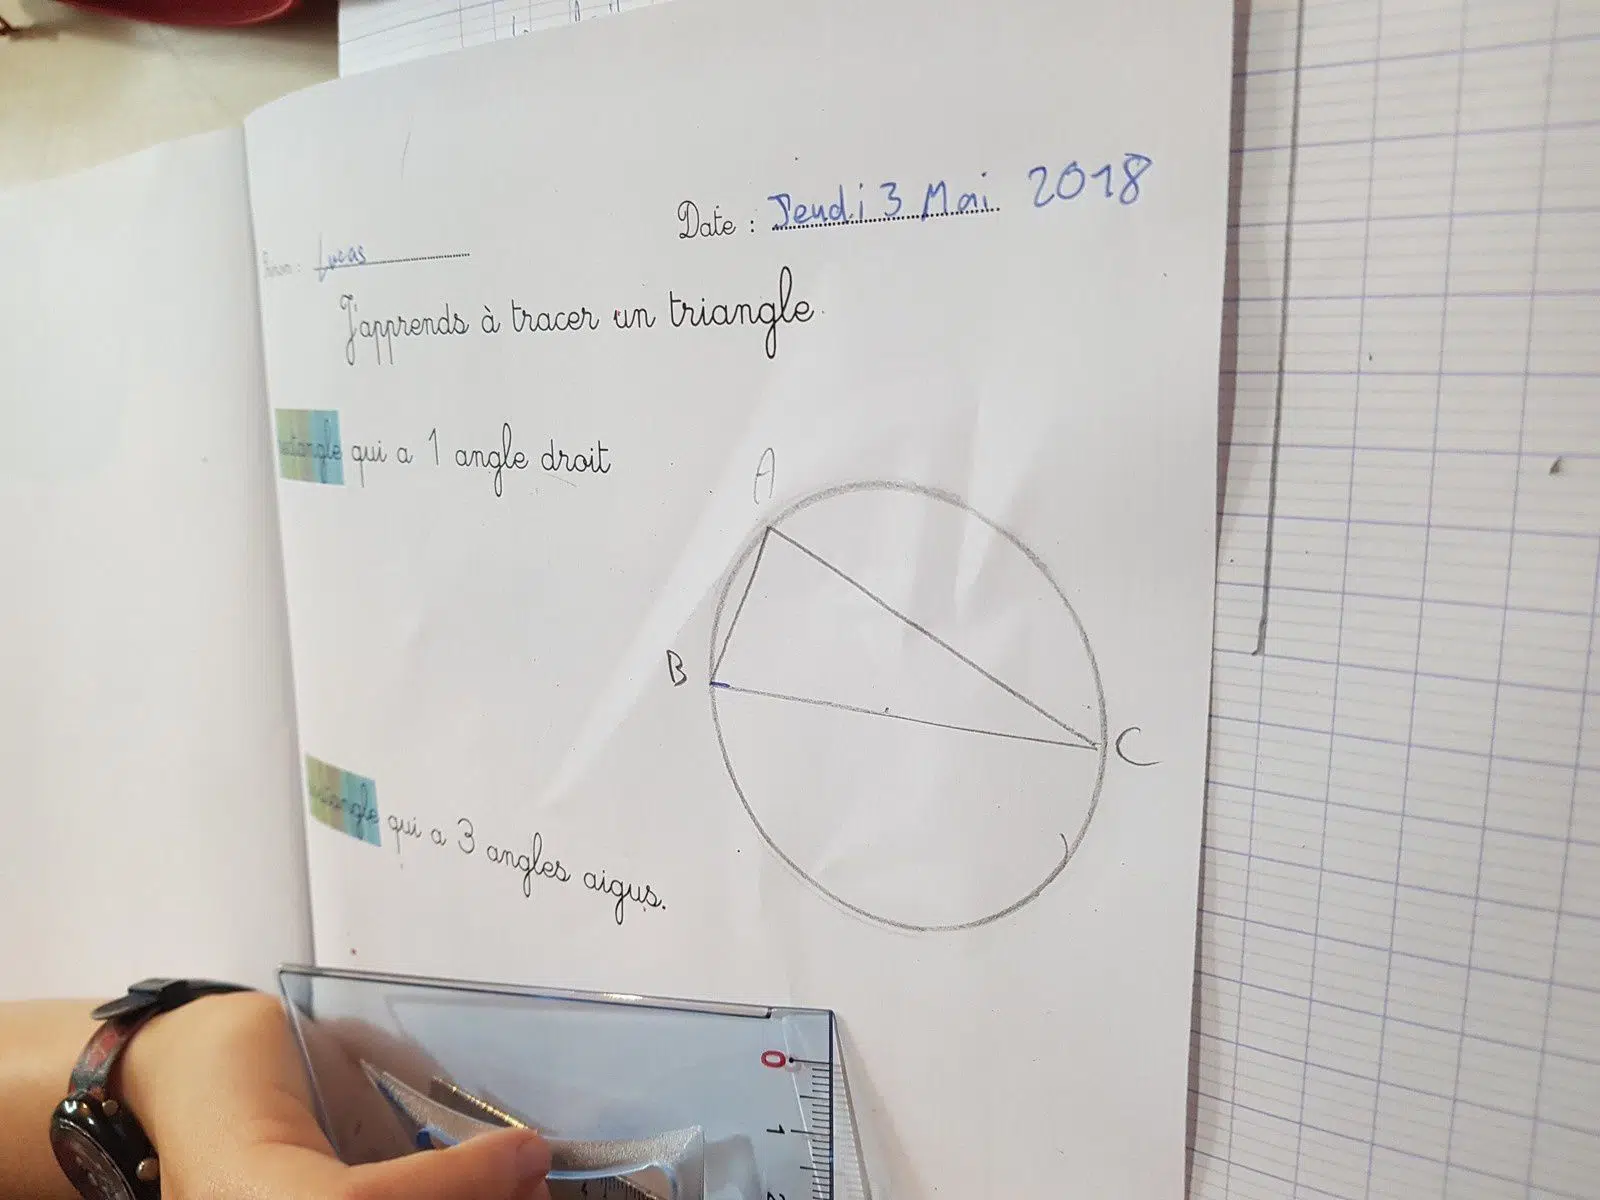 Date : Jeudi 3 Mai 2018
Prénom : Lucas
J'apprends à tracer un triangle.
rectangle qui a 1 angle droit
A
B
C
rectangle qui a 3 angles aigus.
0
1
2